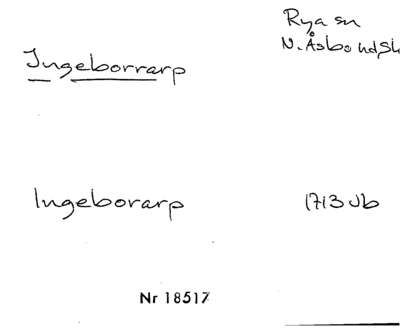 Rya sn
Ingeborrarp N. Åsbo hd Sk
Ingeborarp 1713 Jb
Nr 18517